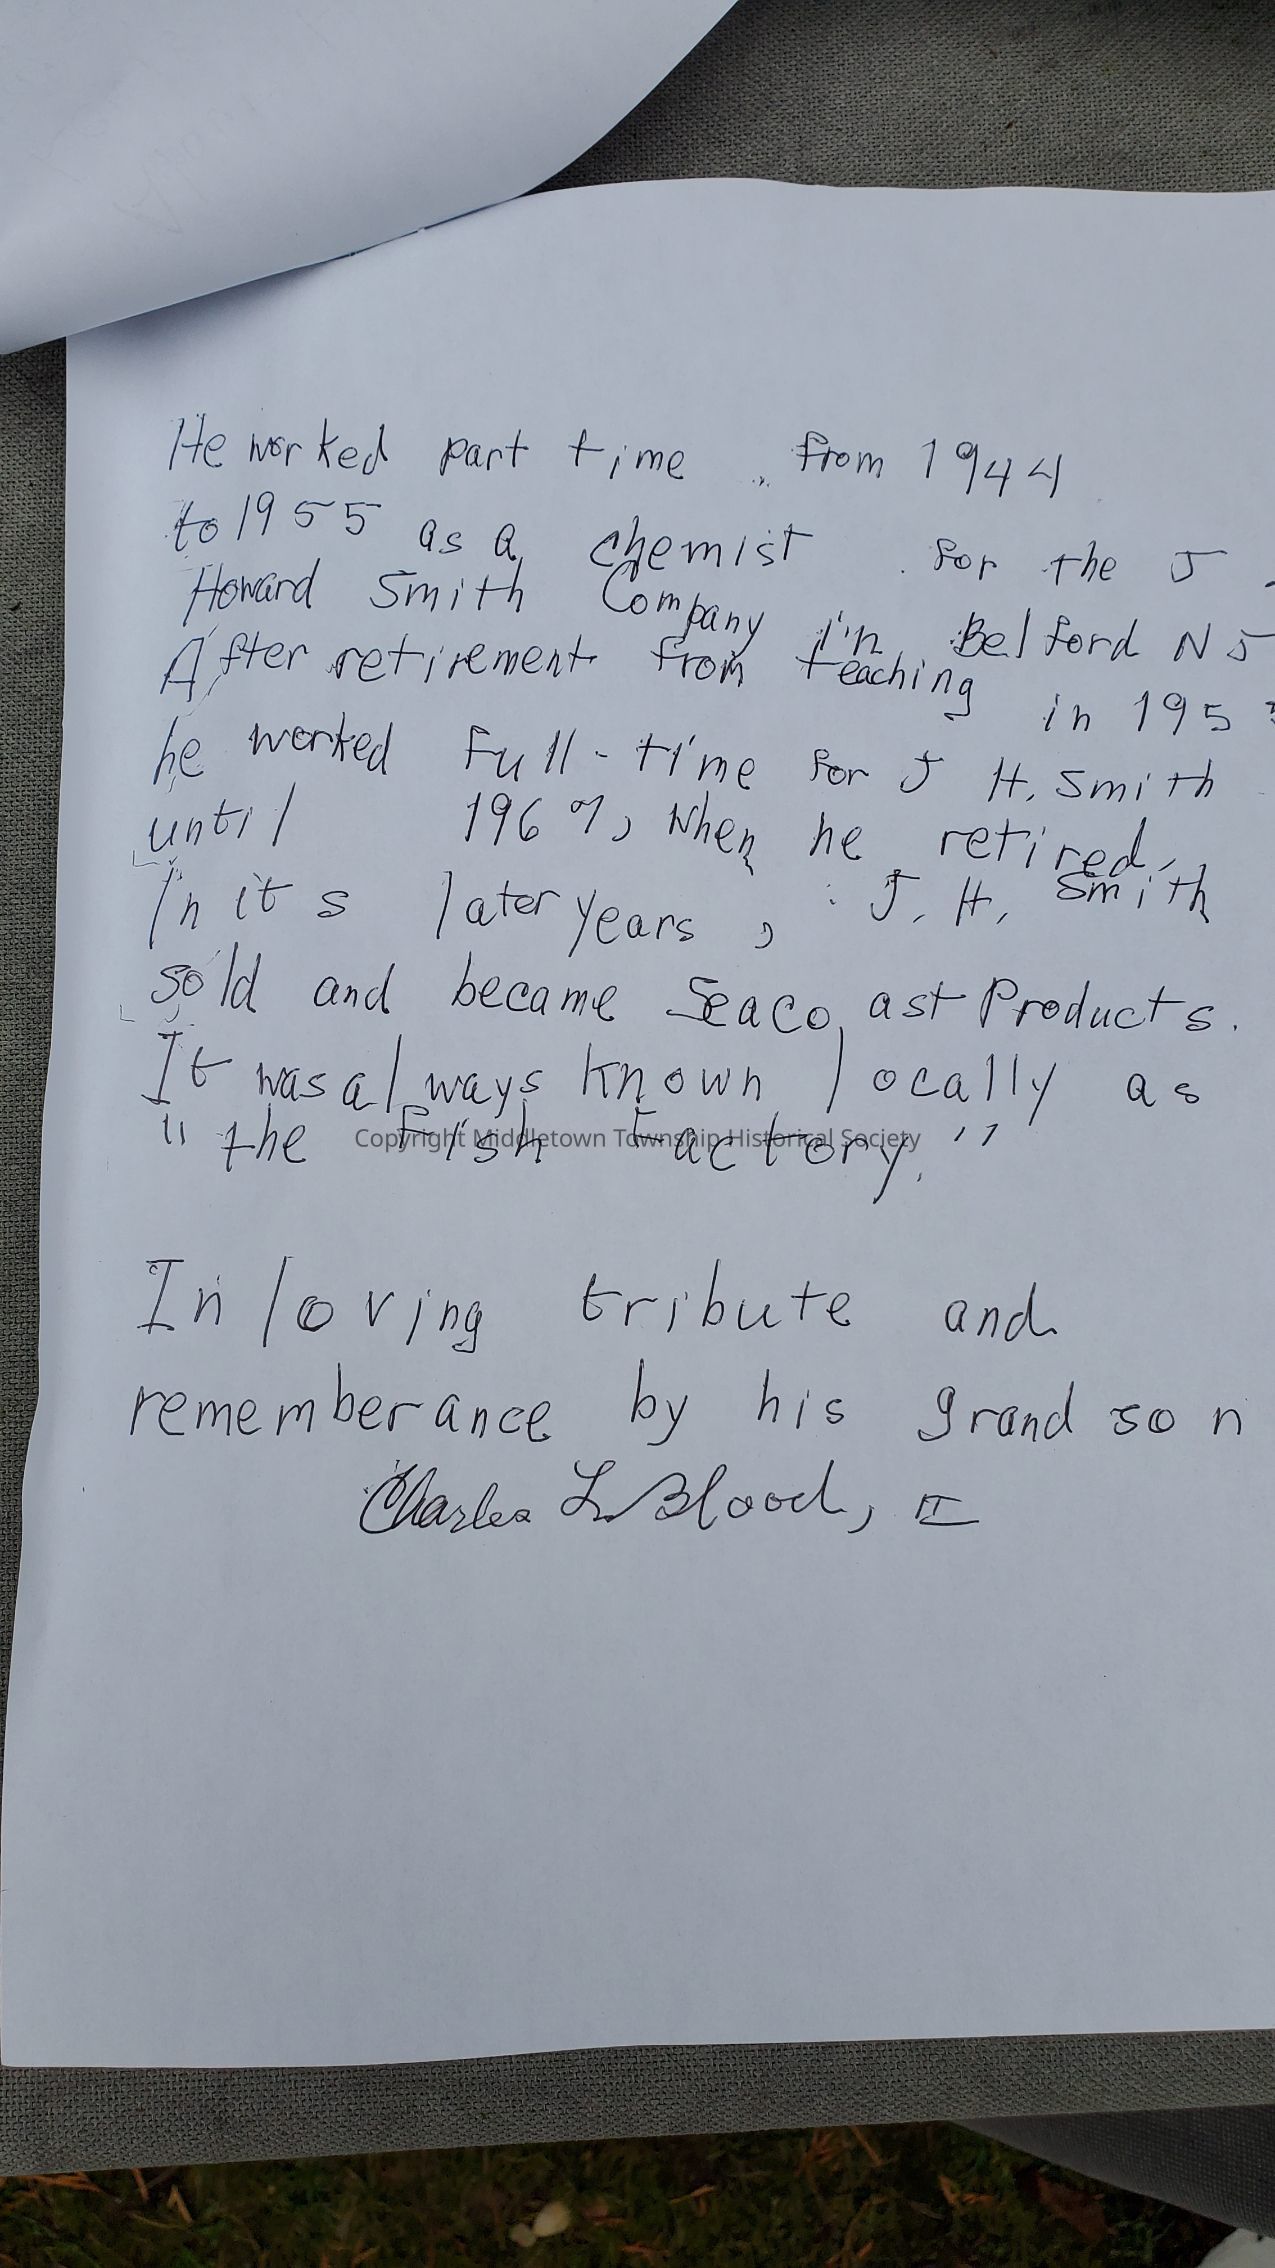 He worked part time from 1944
to 1955 as a chemist for the J.
Howard Smith Company in Belford NJ
After retirement from teaching in 195
he worked Full-time for J H. Smith
until 1967, when he retired.
In its later years, J. H. Smith
sold and became Seacoast Products.
It was always known locally as
"the Fish Factory."
Copyright Middletown Township Historical Society
In loving tribute and
rememberance by his grandson
Charles L. Blood, II